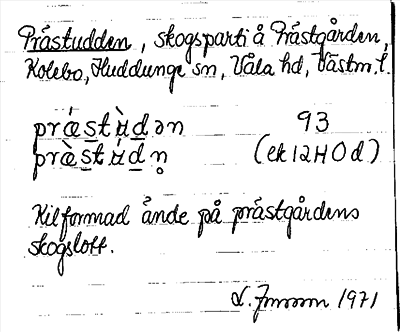 Prästudden, skogsparti å Prästgården,
Kolebo, Huddunge sn, Våla hd, Västm.l.
prǽs̲tʉ̀d̲ən 93
præ̀s̲tʉ́d̲n̥ (ek 12H0d)
Kilformad ände på prästgårdens
skogslott.
L. 1971